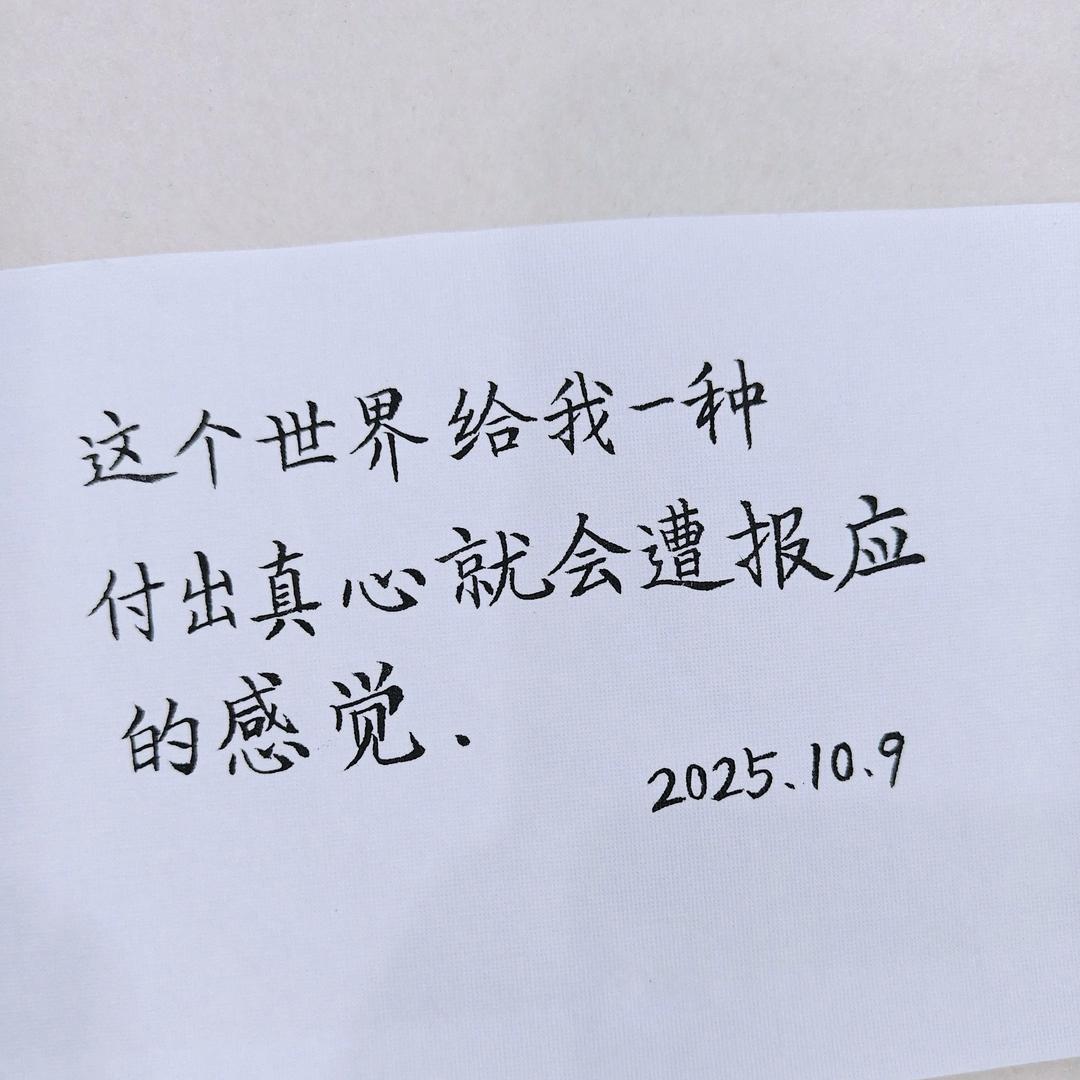 这个世界给我一种
付出真心就会遭报应
的感觉.
2025.10.9